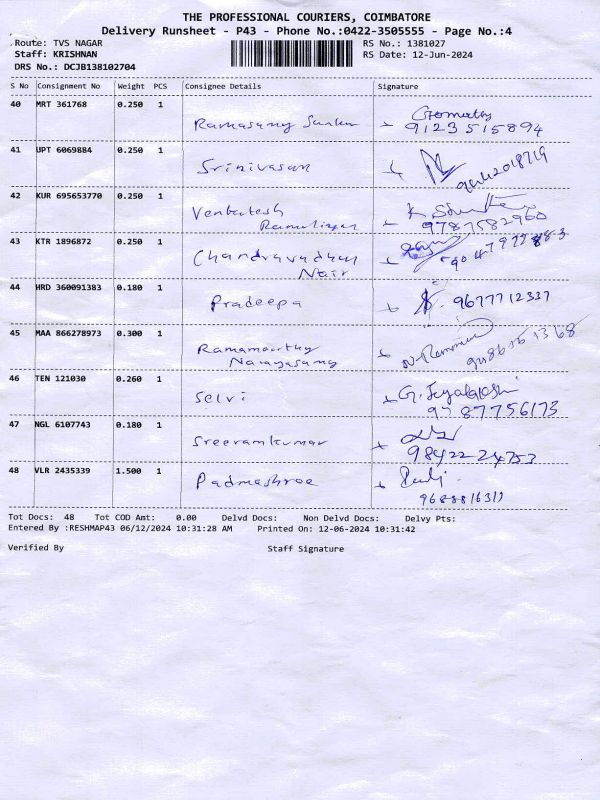 THE PROFESSIONAL COURIERS, COIMBATORE
Delivery Runsheet - P43 - Phone No.:0422-3505555 - Page No.:4
Route: TVS NAGAR RS No.: 1381027
Staff: KRISHNAN RS Date: 12-Jun-2024
DRS No.: DCJB138102704
S No Consignment No Weight PCS Consignee Details Signature
40 MRT 361768 0.250 1
Ramasamy
9123515894
41 UPT 6069884 0.250 1
Srinivasan
42 KUR 695653770 0.250 1
Venkatesh
9787582960
43 KTR 1896872 0.250 1
Chandravadhan
Nair
44 HRD 360091383 0.180 1
Pradeepa 9677712337
45 MAA 866278973 0.300 1
Ramamoorthy
Narayasamy
46 TEN 121030 0.260 1
Selvi
9787756173
47 NGL 6107743 0.180 1
Sreeramkumar 98422 24753
48 VLR 2435339 1.500 1
Padmashree
Tot Docs: 48 Tot COD Amt: 0.00 Delvd Docs: Non Delvd Docs: Delvy Pts:
Entered By :RESHMAP43 06/12/2024 10:31:28 AM Printed On: 12-06-2024 10:31:42
Verified By Staff Signature